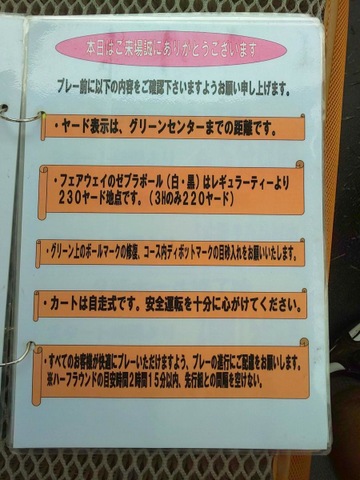 本日はご来場誠にありがとうございます
プレー前に以下の内容をご確認下さいますようお願い申し上げます。
・ヤード表示は、グリーンセンターまでの距離です。
・フェアウェイのゼブラポール（白・黒）はレギュラーティーより
２３０ヤード地点です。（３Hのみ２２０ヤード）
・グリーン上のボールマークの修復、コース内ディボットマークの目砂入れをお願いいたします。
・カートは自走式です。安全運転を十分に心がけてください。
・すべてのお客様が快適にプレーいただけますよう、プレーの進行にご配慮をお願いします。
※ハーフラウンドの目安時間２時間１５分以内、先行組との間隔を空けない。